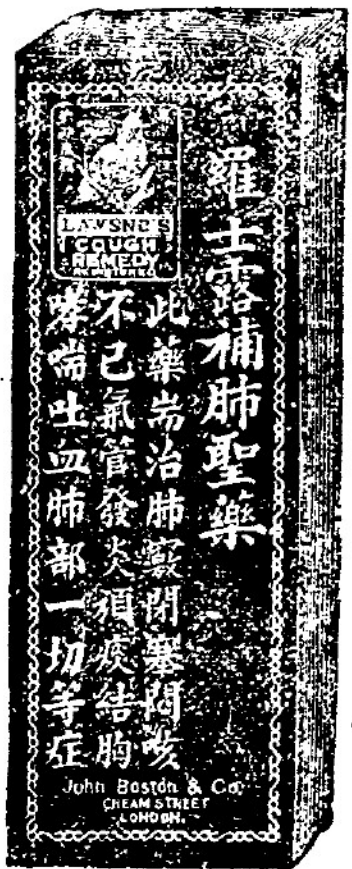 羅士露補肺聖藥
LAWSNE'S
COUGH
REMEDY
REGISTERED
此藥耑治肺竅閉塞悶咳
不已氣管發炎頑痰結胸
哮喘吐血肺部一切等症
John Boston & Co.
CHEAM STREET
LONDON.